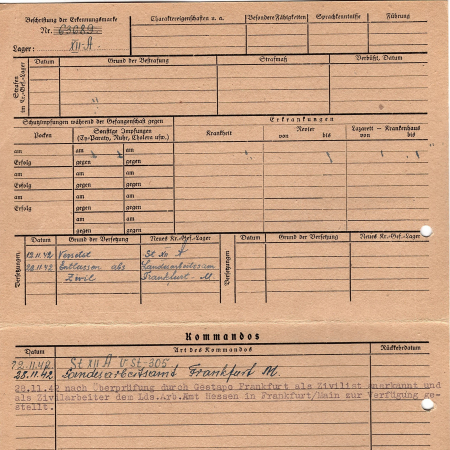 Beschriftung der Erkennungsmarke
Nr. 63089
Lager: XII-A.
Charaktereigenschaften u. a.
Besondere Fähigkeiten
Sprachkenntnisse
Führung
Strafen im Kr.-Gef.-Lager
Datum
Grund der Bestrafung
Strafmaß
Verbüßt, Datum
Schutzimpfungen während der Gefangenschaft gegen
Erkrankungen
Pocken
Sonstige Impfungen
(Ty-Paraty, Ruhr, Cholera usw.)
Krankheit
Revier
von bis
Lazarett - Krankenhaus
von bis
am am am
Erfolg gegen gegen
am am am
Erfolg gegen gegen
am am am
Erfolg gegen gegen
am am
gegen gegen
Versetzungen
Datum
Grund der Versetzung
Neues Kr.-Gef.-Lager
Versetzungen
Datum
Grund der Versetzung
Neues Kr.-Gef.-Lager
12.11.42 St XII A
28.11.42 Entlassen als Landesarbeitsam
Zivil Frankfurt - M.
Kommandos
Datum
Art des Kommandos
Rückkehrdatum
12.11.42 St XII A
28.11.42 Landesarbeitsamt Frankfurt M.
28.11.42 nach Überprüfung durch Gestapo Frankfurt als Zivilist anerkannt und
als Zivilarbeiter dem Lds.Arb.Amt Hessen in Frankfurt/Main zur Verfügung ge-
stellt.